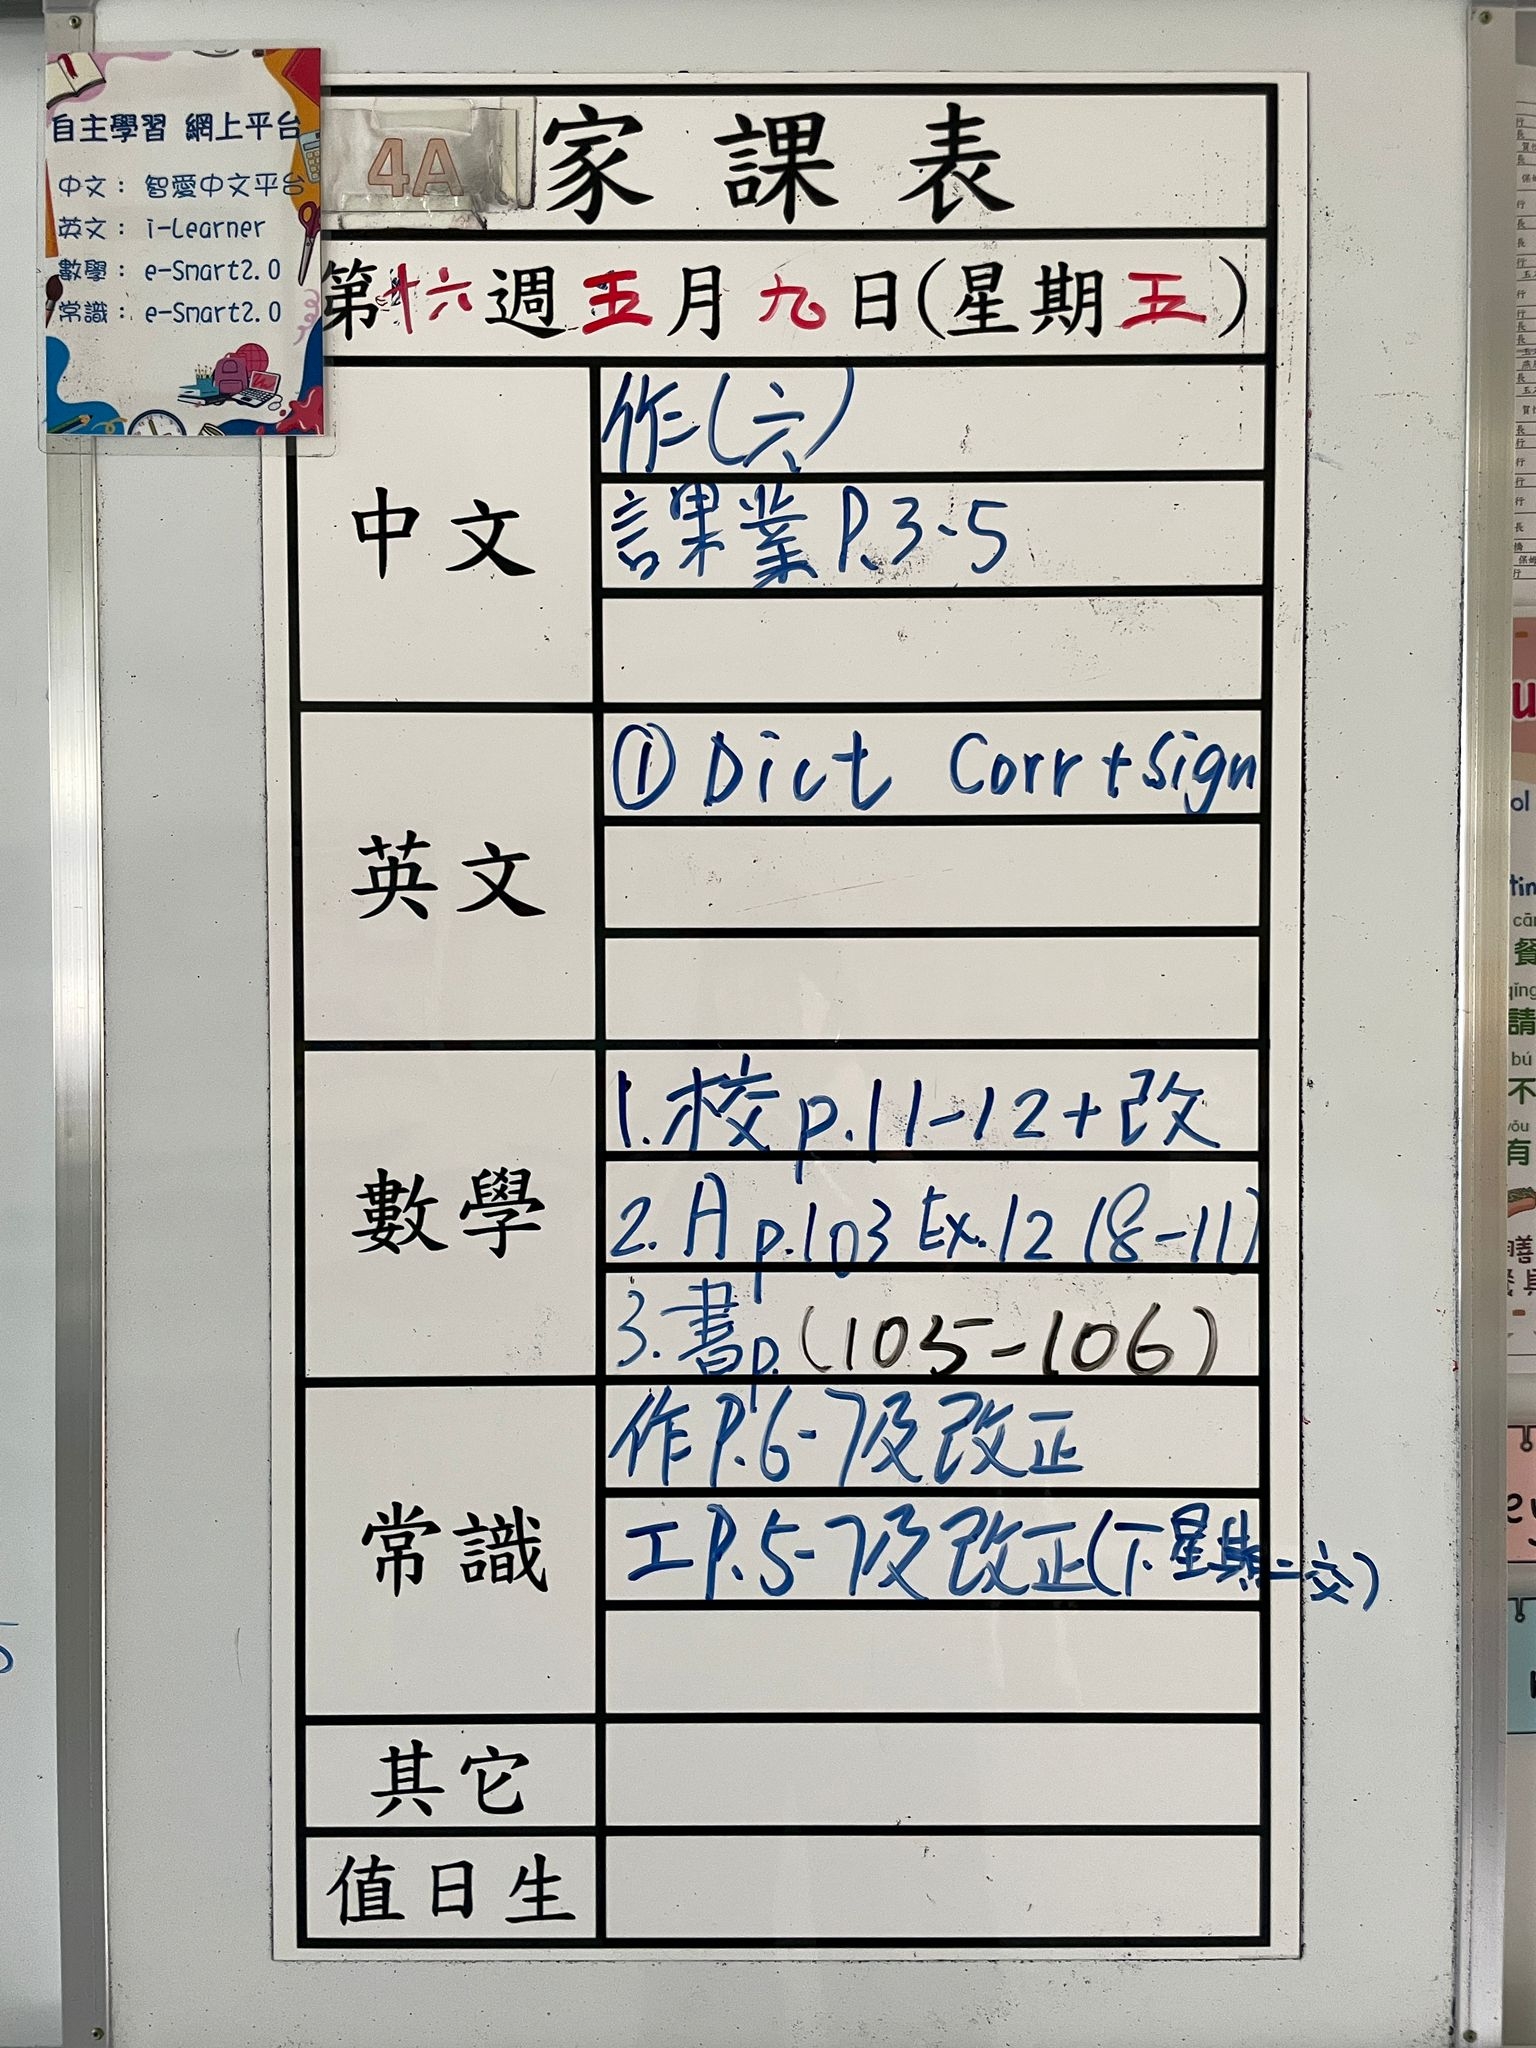 自主學習 網上平台
中文： 智愛中文平台
英文： i-Learner
數學： e-Smart2.0
常識： e-Smart2.0
4A
家課表
第十六週五月九日(星期五)
中文
作(六)
課業P.3-5
英文
① Dict Corr+Sign
數學
1.校p.11-12+改
2. A p.103 Ex.12 (8-11)
3.書p.(105-106)
常識
作P.6-7及改正
工P.5-7及改正(下星期二交)
其它
值日生
cān
餐
qǐng
請
bú
不
yǒu
有